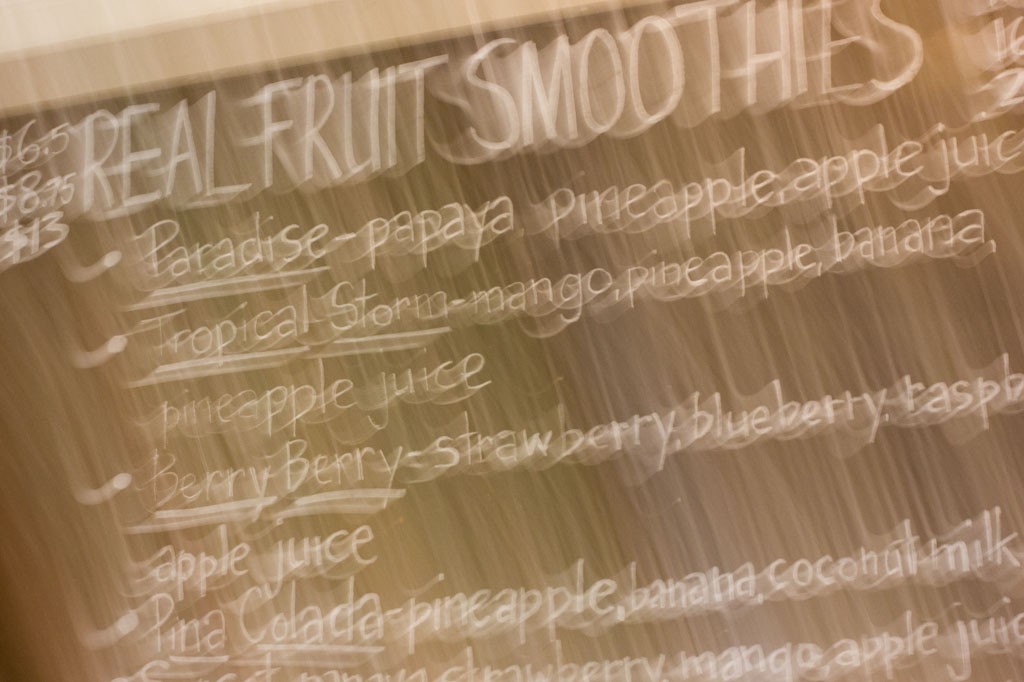 REAL FRUIT SMOOTHIES
$6.5
$8.75
$13
• Paradise - papaya, pineapple, apple juice
• Tropical Storm - mango, pineapple, banana,
pineapple juice
• Berry Berry - strawberry, blueberry, raspb
apple juice
• Pina Colada - pineapple, banana, coconut milk
papaya, strawberry, mango, apple juic